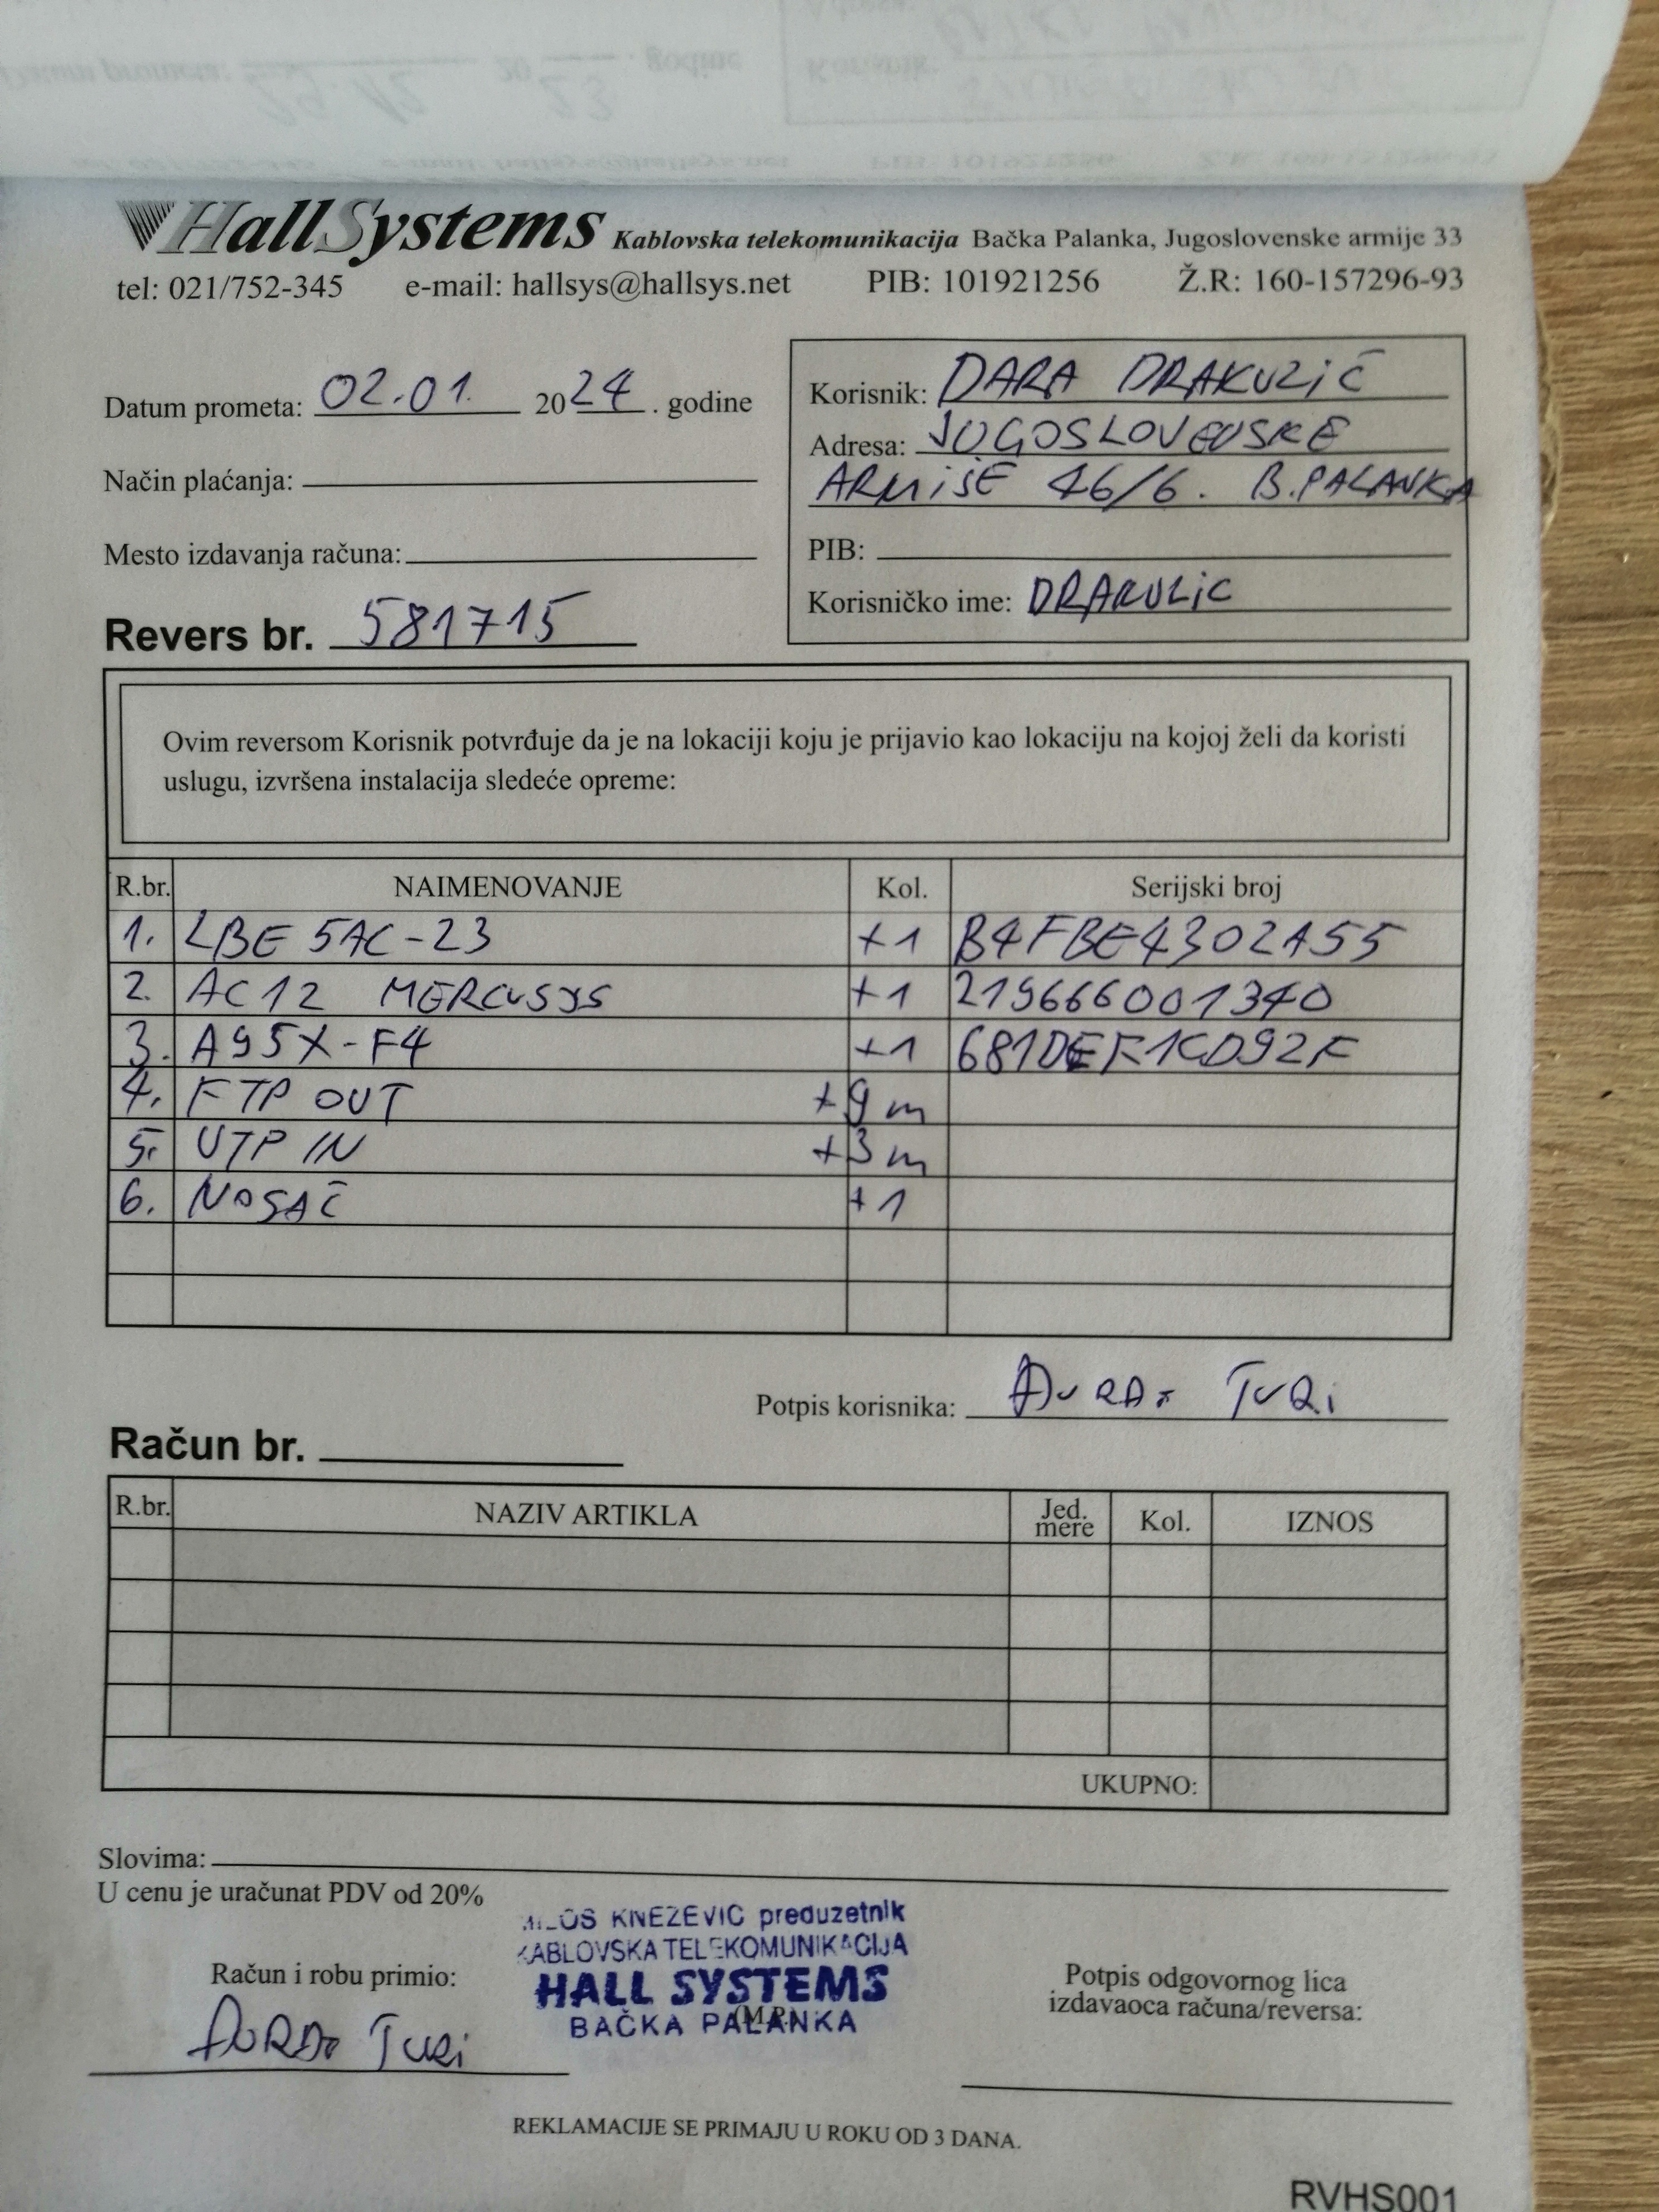 HallSystems Kablovska telekomunikacija Bačka Palanka, Jugoslovenske armije 33
tel: 021/752-345 e-mail: hallsys@hallsys.net PIB: 101921256 Ž.R: 160-157296-93
Datum prometa: 02.01. 2024. godine
Način plaćanja:
Mesto izdavanja računa:
Revers br. 581715
Korisnik: DARA DRAKULIĆ
Adresa: JUGOSLOVENSKE
ARMIJE 46/6. B.PALANKA
PIB:
Korisničko ime: DRAKULIC
Ovim reversom Korisnik potvrđuje da je na lokaciji koju je prijavio kao lokaciju na kojoj želi da koristi
uslugu, izvršena instalacija sledeće opreme:
R.br. NAIMENOVANJE Kol. Serijski broj
1. LBE 5AC-23 +1 B4FBE4302A55
2. AC12 MERCUSYS +1 219666001340
3. A95X-F4 +1 681DEF1CD92F
4. FTP OUT +9 m
5. UTP IN +3 m
6. NOSAČ +1
Potpis korisnika: TURI
Račun br.
R.br. NAZIV ARTIKLA Jed. mere Kol. IZNOS
UKUPNO:
Slovima:
U cenu je uračunat PDV od 20%
KNEZEVIC preduzetnik
KABLOVSKA TELEKOMUNIKACIJA
HALL SYSTEMS
(M.P.)
BAČKA PALANKA
Račun i robu primio:
TURI
Potpis odgovornog lica
izdavaoca računa/reversa:
REKLAMACIJE SE PRIMAJU U ROKU OD 3 DANA.
RVHS001